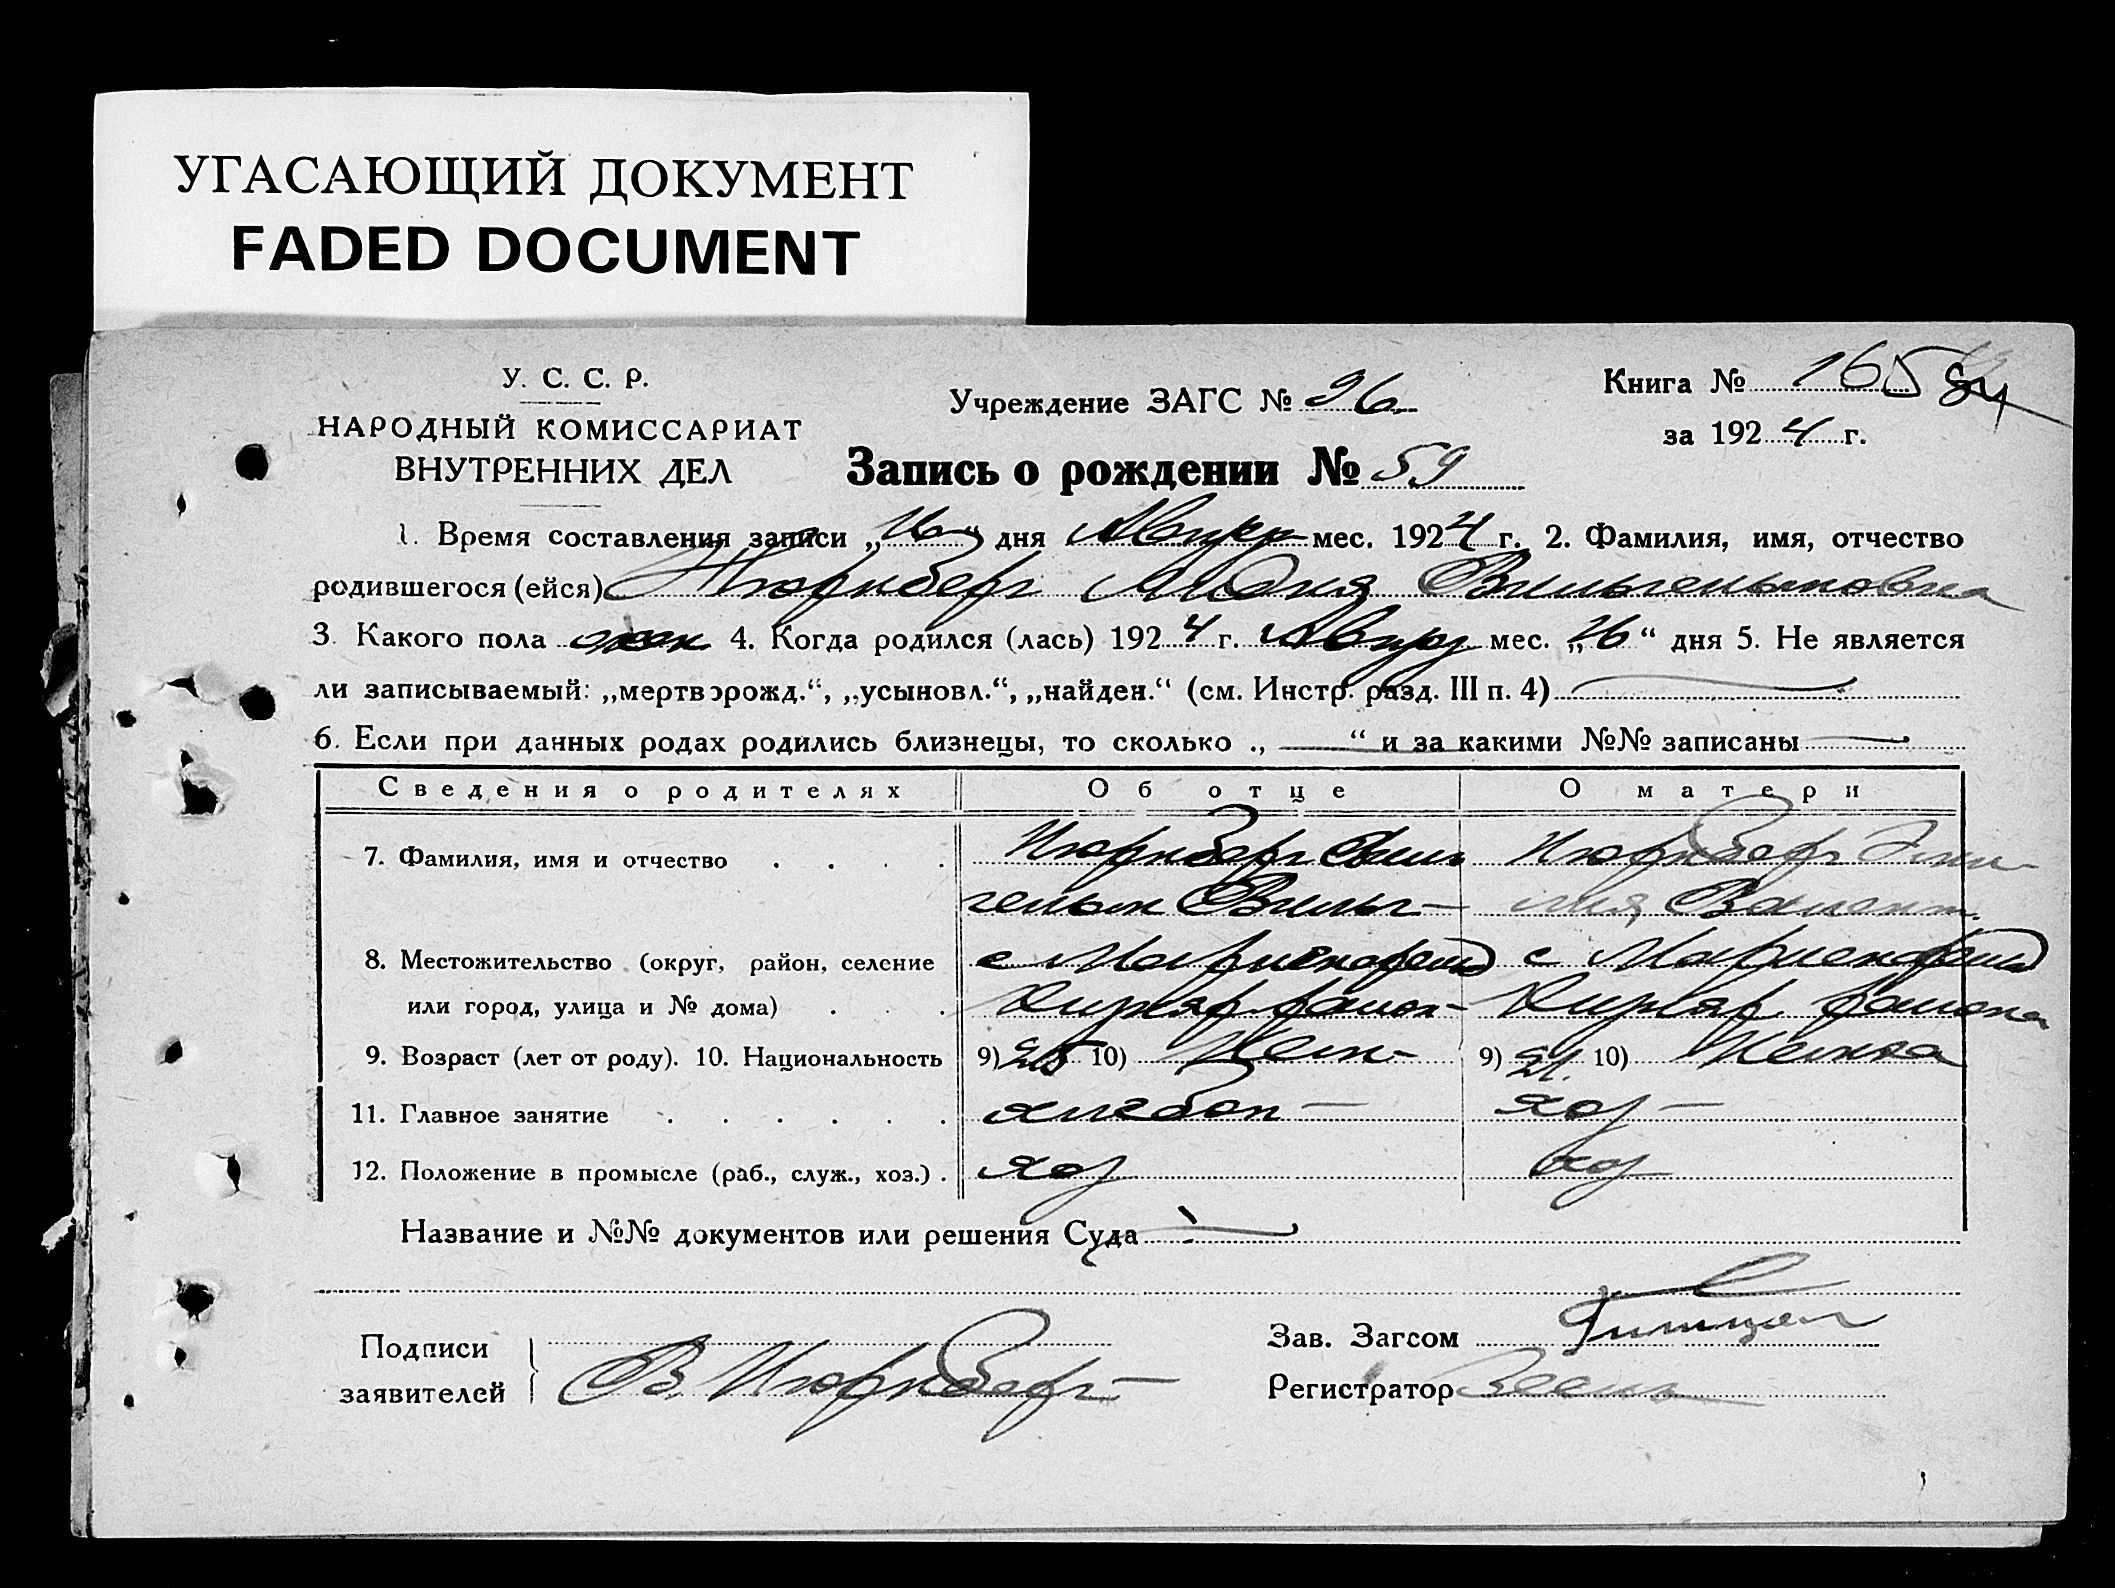 УГАСАЮЩИЙ ДОКУМЕНТ
FADED DOCUMENT
У. С. С. Р.
НАРОДНЫЙ КОМИССАРИАТ
ВНУТРЕННИХ ДЕЛ
Учреждение ЗАГС № 96
Книга № 165 84
за 1924 г.
Запись о рождении № 59
1. Время составления записи „16“ дня мес. 1924 г. 2. Фамилия, имя, отчество
родившегося (ейся) Нюрнберг Лидия Вильгельмовна
3. Какого пола жен 4. Когда родился (лась) 1924 г. мес. „26“ дня 5. Не является
ли записываемый: „мертворожд.“, „усыновл.“, „найден.“ (см. Инстр. разд. III п. 4)
6. Если при данных родах родились близнецы, то сколько „ — “ и за какими №№ записаны —
Сведения о родителях Об отце О матери
7. Фамилия, имя и отчество . . . . Нюрнберг Виль Нюрнберг Эми-
гельм Вильг- лия Валент.
8. Местожительство (округ, район, селение с Мариенфельд с Мариенфельд
или город, улица и № дома) . . . район- района
9. Возраст (лет от роду). 10. Национальность 9) 25 10) Нем- 9) 21. 10) Немка
11. Главное занятие . . . . . . хлебоп — хоз —
12. Положение в промысле (раб., служ., хоз.) . хоз хоз
Название и №№ документов или решения Суда —
Подписи
заявителей
В. Нюрнберг
Зав. Загсом
Регистратор